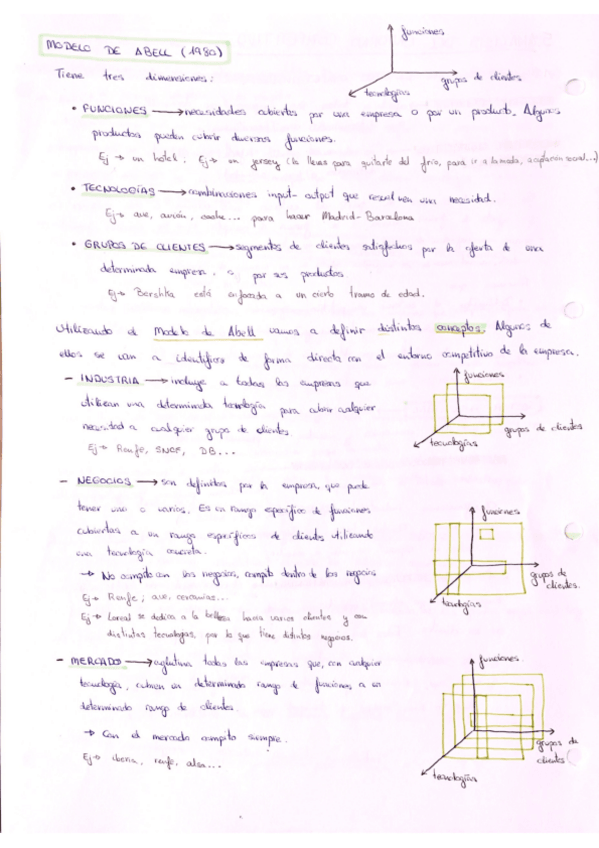 MODELO DE ABELL (1980)
funciones
grupos de clientes
tecnologías
Tiene tres dimensiones:
• FUNCIONES → necesidades cubiertas por una empresa o por un producto. Algunos
productos pueden cubrir diversas funciones.
Ej → un hotel; Ej → un jersey (lo llevas para quitarte del frío, para ir a la moda, aceptación social...)
• TECNOLOGÍAS → combinaciones input-output que resuelven una necesidad.
Ej → ave, avión, coche... para hacer Madrid-Barcelona
• GRUPOS DE CLIENTES → segmentos de clientes satisfechos por la oferta de una
determinada empresa o por sus productos
Ej → Bershka está enfocada a un cierto tramo de edad.
Utilizando el Modelo de Abell vamos a definir distintos conceptos. Algunos de
ellos se van a identificar de forma directa con el entorno competitivo de la empresa.
– INDUSTRIA → incluye a todas las empresas que
utilizan una determinada tecnología para cubrir cualquier
necesidad a cualquier grupo de clientes
Ej → Renfe, SNCF, DB...
funciones
grupos de clientes
tecnologías
– NEGOCIOS → son definidos por la empresa, que puede
tener uno o varios. Es un rango específico de funciones
cubiertas a un rango específico de clientes utilizando
una tecnología concreta.
→ No compito con los negocios, compito dentro de los negocios
Ej → Renfe; ave, cercanías...
Ej → Loreal se dedica a la belleza hacia varios clientes y con
distintas tecnologías, por lo que tiene distintos negocios.
funciones
grupos de
clientes.
tecnologías
– MERCADO → aglutina todas las empresas que, con cualquier
tecnología, cubren un determinado rango de funciones a un
determinado rango de clientes
→ Con el mercado compito siempre.
Ej → iberia, renfe, alsa...
funciones
grupos de
clientes
tecnologías